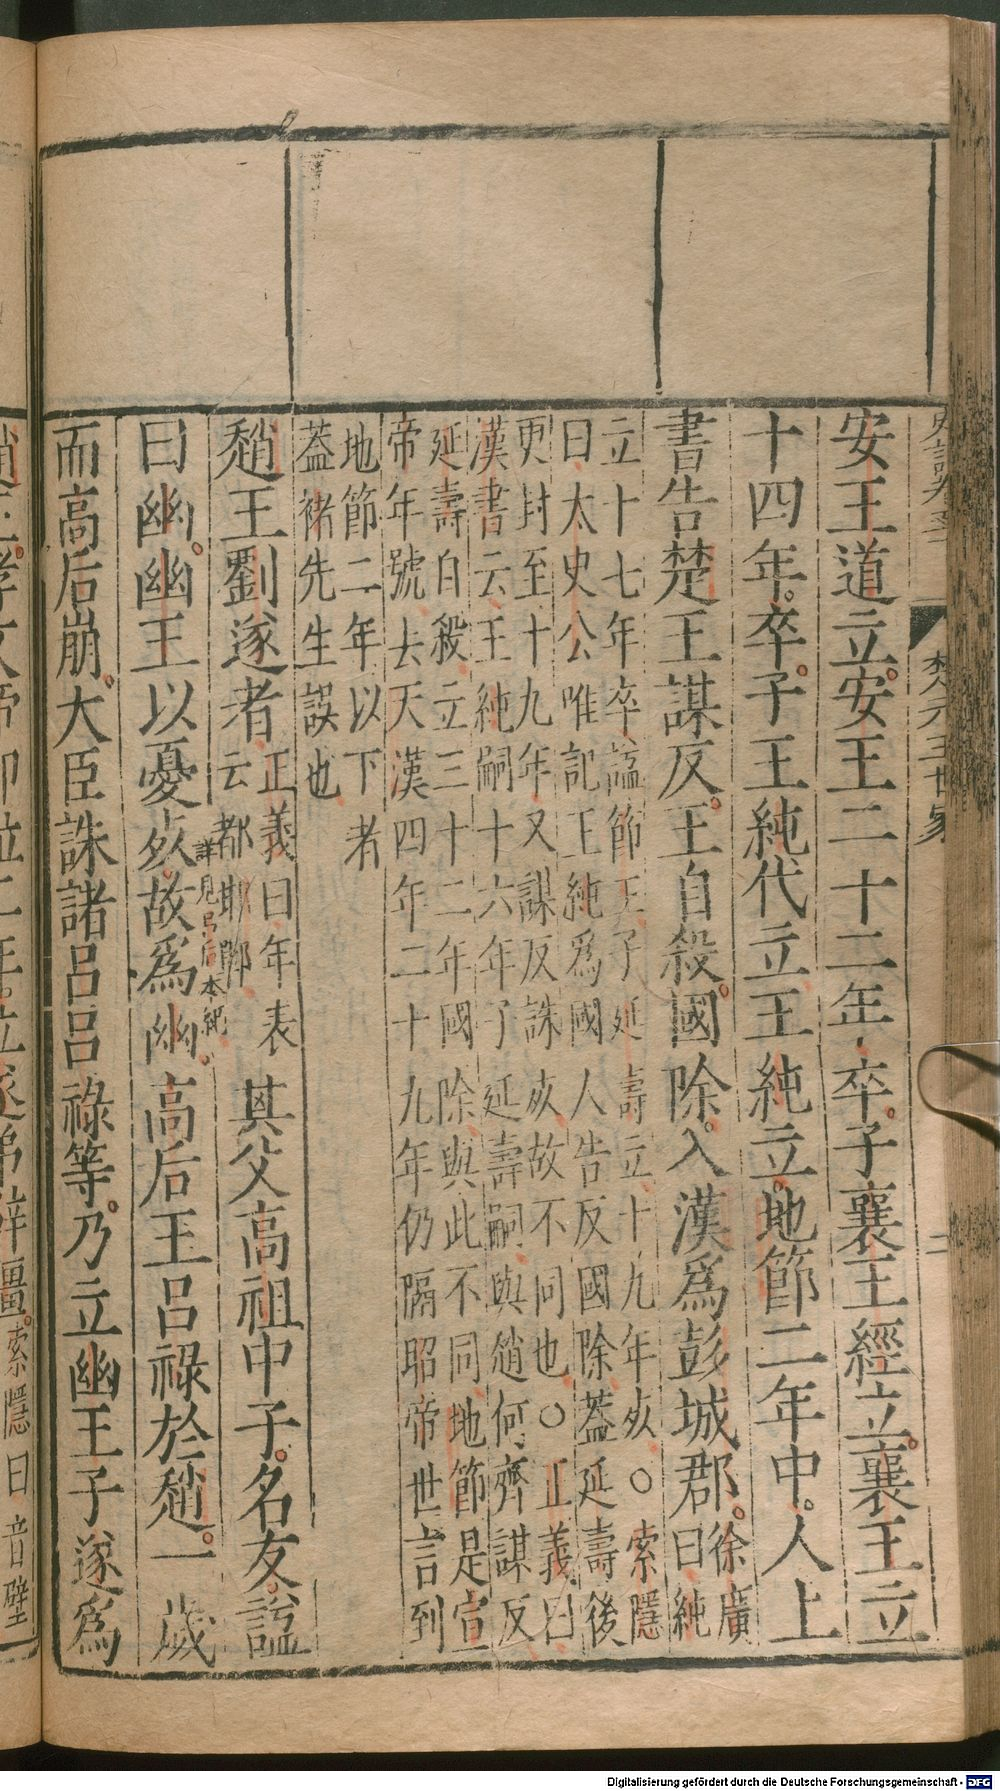 史記卷五十
楚元王世家
二
安王道立安王二十二年卒子襄王經立襄王立
十四年卒子王純代立王純立地節二年中人上
書告楚王謀反王自殺國除入漢爲彭城郡
徐廣
曰純
立十七年卒諡節王子延壽立十九年死○索隱
曰太史公唯記王純爲國人告反國除蓋延壽後
更封至十九年又謀反誅死故不同也○正義曰
漢書云王純嗣十六年子延壽嗣與趙何齊謀反
延壽自殺立三十二年國除與此不同地節是宣
帝年號去天漢四年二十九年仍隔昭帝世言到
地節二年以下者
蓋褚先生誤也
趙王劉遂者
正義曰年表
云都邯鄲
其父高祖中子名友諡
詳見呂后本紀
曰幽幽王以憂死故爲幽高后王呂祿於趙一歲
而高后崩大臣誅諸呂呂祿等乃立幽王子遂爲
辟疆索隱曰音壁
Digitalisierung gefördert durch die Deutsche Forschungsgemeinschaft - DFG